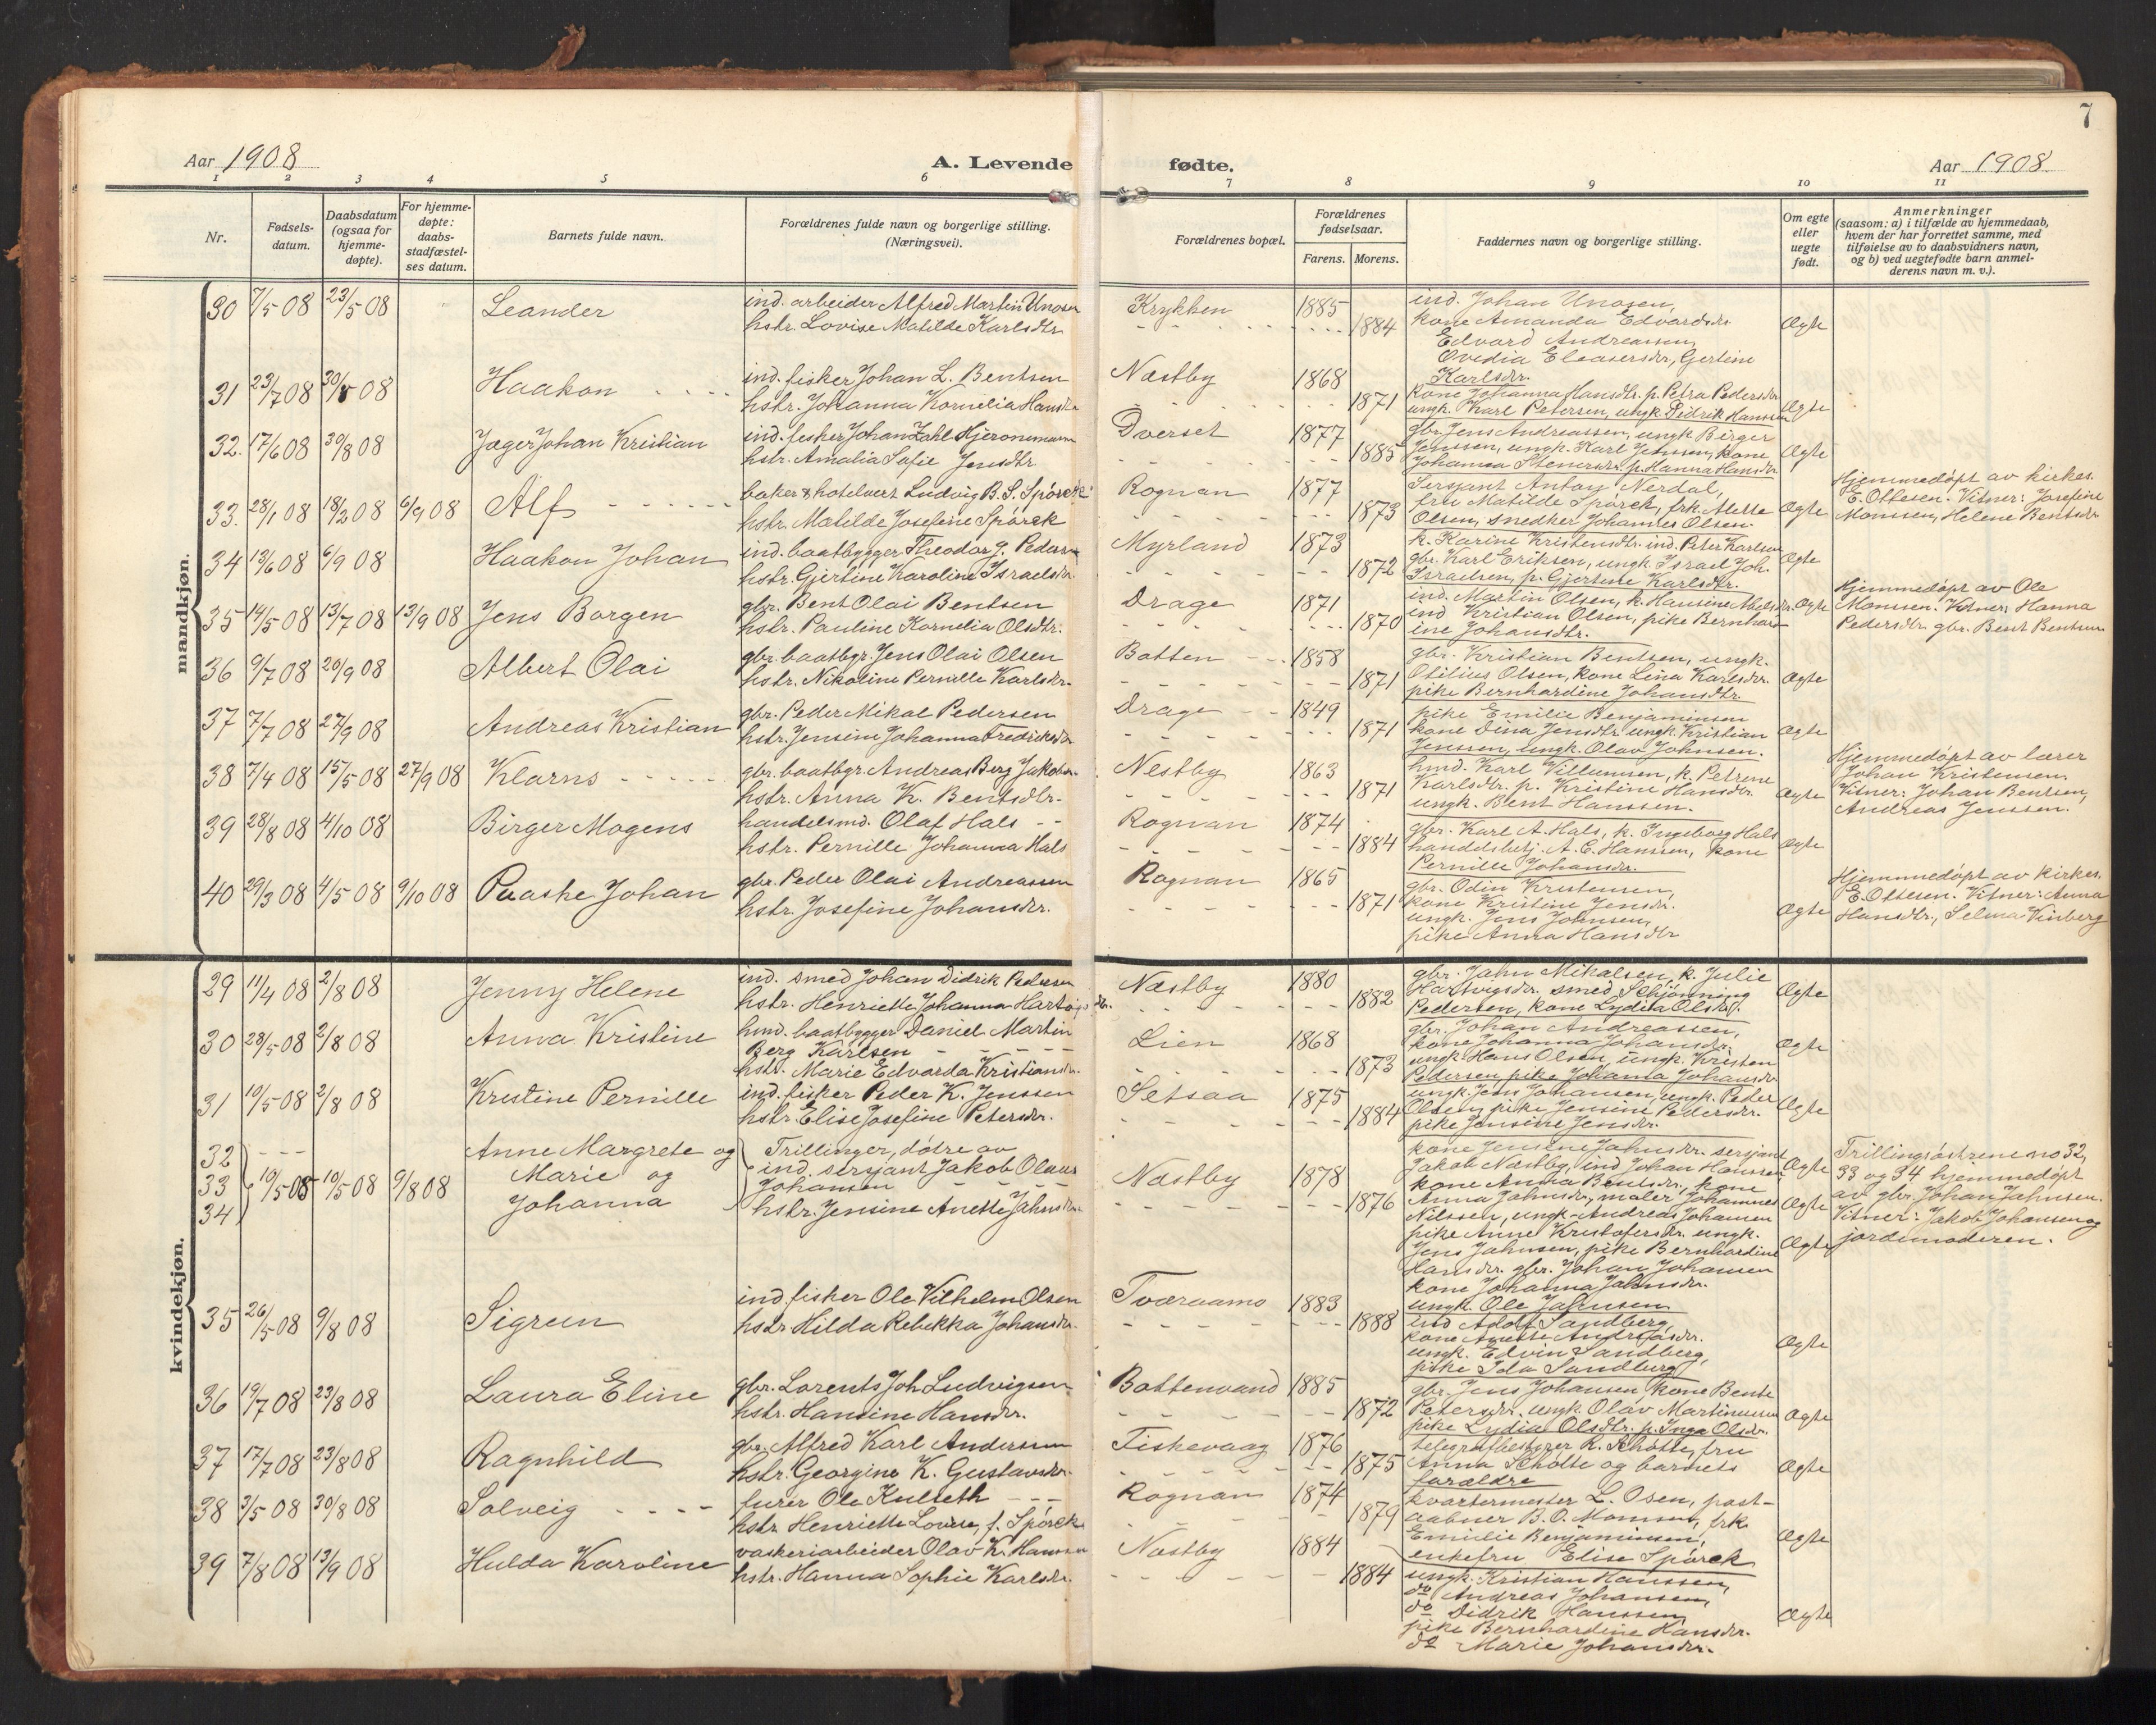 7
Aar 1908
A. Levende
fødte.
Aar 1908
1 2 3 4 5 6 7 8 9 10 11
Nr.
Fødsels-
datum.
Daabsdatum
(ogsaa for
hjemme-
døpte).
For hjemme-
døpte:
daabs-
stadfæstel-
ses datum.
Barnets fulde navn.
Forældrenes fulde navn og borgerlige stilling.
(Næringsvei).
Forældrenes bopæl.
Forældrenes
fødselsaar.
Farens. Morens.
Faddernes navn og borgerlige stilling.
Om egte
eller
uegte
født.
Anmerkninger
(saasom: a) i tilfælde av hjemmedaab,
hvem der har forrettet samme, med
tilføielse av to daabsvidners navn,
og b) ved uegtefødte barn anmel-
derens navn m. v.).
mandkjøn.
30 7/5 08 23/5 08 Leander
ind. arbeider Alfred Martin Unosen
hstr. Lovise Matilde Karlsdtr.
Krykken 1885
1884
ind. Johan Unosen,
kone Amanda Edvardsdr.
Edvard Andreassen,
Ovedia Eleasersdr, Gertine
Karlsdr.
Ægte
31 23/7 08 30/8 08 Haakon
ind. fisker Johan L. Bentsen
hstr. Johanna Kornelia Hansdtr
Næstby 1868
1871
kone Johanna Hansdtr. p. Petra Pedersdr
ungk. Karl Petersen, ungk. Didrik Hanssen
Ægte
32. 17/6 08 30/8 08 Jæger Johan Kristian
ind. fisker Johan Zahl Hjeronimussen
hstr. Amalia Sofie Jensdtr.
Dverset 1877
1885
gbr. Jens Andreassen, ungk Birger
Jenssen, ungk. Karl Jenssen, kone
Johanna Stenersdr. p. Hanna Hansdr.
Ægte
33. 28/1 08 18/2 08 6/9 08 Alf
baker & hotelvert Ludvig B. S. Spørck
hstr. Matilde Josefine Spörck
Rognan 1877
1873
Sersjant Antoy Nerdal,
fru Matilde Spörck, frk. Alette
Olsen, snedker Johannes Olsen.
Ægte
Hjemmedøpt av kirkes.
E. Ottesen. Vitner: Josefine
Monssen, Helene Bentsdr
34 13/6 08 6/9 08 Haakon Johan
ind. baatbygger Theodor J. Pedersen
hstr. Gjertine Karoline Israelsdr.
Myrland 1873
1872
k. Karine Kristensdtr. ind. Peter Karlsen
gbr. Karl Eriksen, ungk. Israel Joh.
Israelsen, p. Gjertine Karlsdtr.
Ægte
35 14/5 08 13/7 08 13/9 08 Jens Borgen
gbr. Bent Olai Bentsen
hstr. Pauline Kornelia Olsdtr.
Drage 1871
1870
ind. Martin Olsen, k. Hansine Abelsdr.
ind Kristian Olsen, pike Bernhard-
ine Johansdtr.
Ægte
Hjemmedøpt av Ole
Monssen. Vitner: Hanna
Pedersdtr. gbr. Bent Bentsen
36 9/7 08 20/9 08 Albert Olai
gbr. baatbgr. Jens Olai Olsen
hstr. Nikoline Pernille Karlsdr.
Botten 1858
1871
gbr. Kristian Bentsen, ungk.
Otilius Olsen, kone Lina Karlsdr.
pike Bernhardine Johansdtr.
Ægte
37 7/7 08 27/9 08 Andreas Kristian
gbr. Peder Mikal Pedersen
hstr. Jensine Johanna Fredriksdtr
Drage 1849
1871
pike Emilie Benjaminsen
kone Dina Jensdtr. ungk. Kristian
Jenssen, ungk. Olav Johnsen.
Ægte
38 7/4 08 15/5 08 27/9 08 Klarns
gbr. baatbgr. Andreas Berg Jakobsen
hstr. Anna K. Bentsdtr.
Nestby 1863
1871
hmd. Karl Villumsen, k. Petrine
Karlsdtr. p. Kristine Hansdtr.
ungk. Bent Hanssen.
Ægte
Hjemmedøpt av lærer
Johan Kristensen.
Vitner: Johan Bentsen,
Andreas Jenssen.
39 28/8 08 4/10 08 Birger Mogens
handelsmd. Olaf Hals
hstr. Pernille Johanna Hals
Rognan 1874
1884
gbr. Karl A. Hals, k. Ingeborg Hals
handelsbetj. A. C. Hanssen, kone
Pernille Johansdr.
Ægte
40 29/3 08 4/5 08 9/10 08 Paaske Johan
gbr. Peder Olai Andreassen
hstr. Josefine Johansdr.
Rognan 1865
1871
gbr. Odin Kristensen,
kone Kristine Jensdr.
ungk. Jens Johnsen,
pike Anna Hansdtr
Ægte
Hjemmedøpt av kirkes.
E. Ottesen. Vitner: Anna
Hansdtr., Selma Vinberg
kvindekjøn.
29 11/4 08 2/8 08 Jenny Helene
ind. smed Johan Didrik Pedersen
hstr. Henriette Johanna Hartvigsdtr.
Næstby 1880
1882
gbr. Jahn Mikalsen, k. Julie
Hartvigsdr. smed Schjønning
Pedersen, kone Lydia Olsdtr.
Ægte
30 28/5 08 2/8 08 Anna Kristine
hmd. baatbygger Daniel Martin
Berg Karlsen
hstr. Marie Edvarda Kristiansdr.
Lien 1868
1873
gbr. Johan Andreassen,
kone Johanna Johansdr.
ungk. Hans Olsen, ungk. Kristen
Pedersen, pike Johanna Johansdr
Ægte
31 10/5 08 2/8 08 Kristine Pernille
ind. fisker Peder K. Jenssen
hstr. Elise Josefine Petersdr.
Setsaa 1875
1884
ungk. Jens Johansen, ungk. Peder
Olsen, pike Jensine Pedersdr.
pike Jensine Jensdr.
Ægte
32 Anne Margrete og
33 10/5 08 10/5 08 9/8 08 Marie og
34 Johanna
Trillinger, døtre av
ind. sersjant Jakob Olaus
Johansen
hstr. Jensine Anette Jahnsdr.
Næstby 1878
1876
kone Jensine Jahnsdr. sersjant
Jakob Næstby, ind Johan Hanssen
kone Anna Bentsdr., kone
Anna Jahnsdr, maler Johannes
Nilssen, ungk. Andreas Johansen
pike Anne Kristofersdr. ungk.
Jens Jahnsen, pike Bernhardine
Hansdr. gbr. Johan Johansen
kone Johanna Jahnsdr.
ungk. Ole Jahnsen
Ægte
Ægte
Ægte
Trillingsøstrene no 32,
33 og 34 hjemmedøpt
av gbr. Johan Jahnsen.
Vitner: Jakob Johansen og
jordemoderen.
35 26/5 08 9/8 08 Sigrun
ind. fisker Ole Vilhelm Olsen
hstr. Hilda Rebekka Johansdr.
Tværaamo 1883
1888
ind Adolf Sandberg,
kone Anette Andreasdr.
ungk. Edvin Sandberg,
pike Ida Sandberg
Ægte
36 19/7 08 23/8 08 Laura Eline
gbr. Lorents Joh. Ludvigsen
hstr. Hansine Hansdr.
Bottenvand 1885
1872
gbr. Jens Johansen, kone Bente
Petersdr. ungk Olav Martinussen
pike Lydia Olsdtr. p. Inga Olsdr.
Ægte
37 17/7 08 23/8 08 Ragnhild
gbr. Alfred Karl Andersen
hstr. Georgine K. Gustavsdr.
Fiskevaag 1876
1875
telegrafbestyrer R. Schøtte, fru
Anna Schøtte og barnets
forældre
Ægte
38 3/5 08 30/8 08 Solveig
furer Ole Kulseth
hstr. Henriette Lovise, f. Spörck
Rognan 1874
1879
kvartermester L. Osen, post-
aabner B. O. Monssen, frk.
Emilie Benjaminsen,
enkefru Elise Spörck
Ægte
39 7/8 08 13/9 08 Hulda Karoline
vaskeriarbeider Olav K. Hanssen
hstr. Hanna Sophie Karlsdr.
Næstby 1884
1884
ungk. Kristian Hanssen,
do Andreas Johansen,
do Didrik Hanssen,
pike Bernhardine Hansdr.
do Marie Johansdr.
Ægte